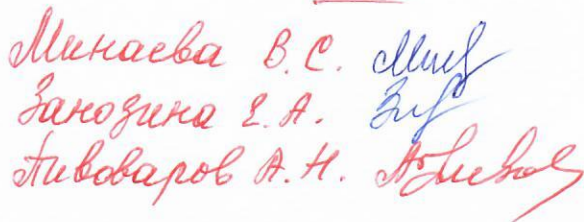 Минаева В.С.
Занозина Е.А.
Пивоваров А.Н.